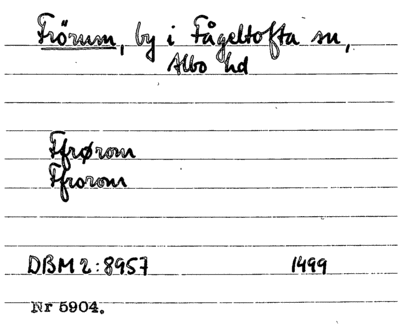 Frörum, by i Fågeltofta sn,
Albo hd
Ffrørom
Ffrorom
DBM 2:8957 1499
Nr 5904.